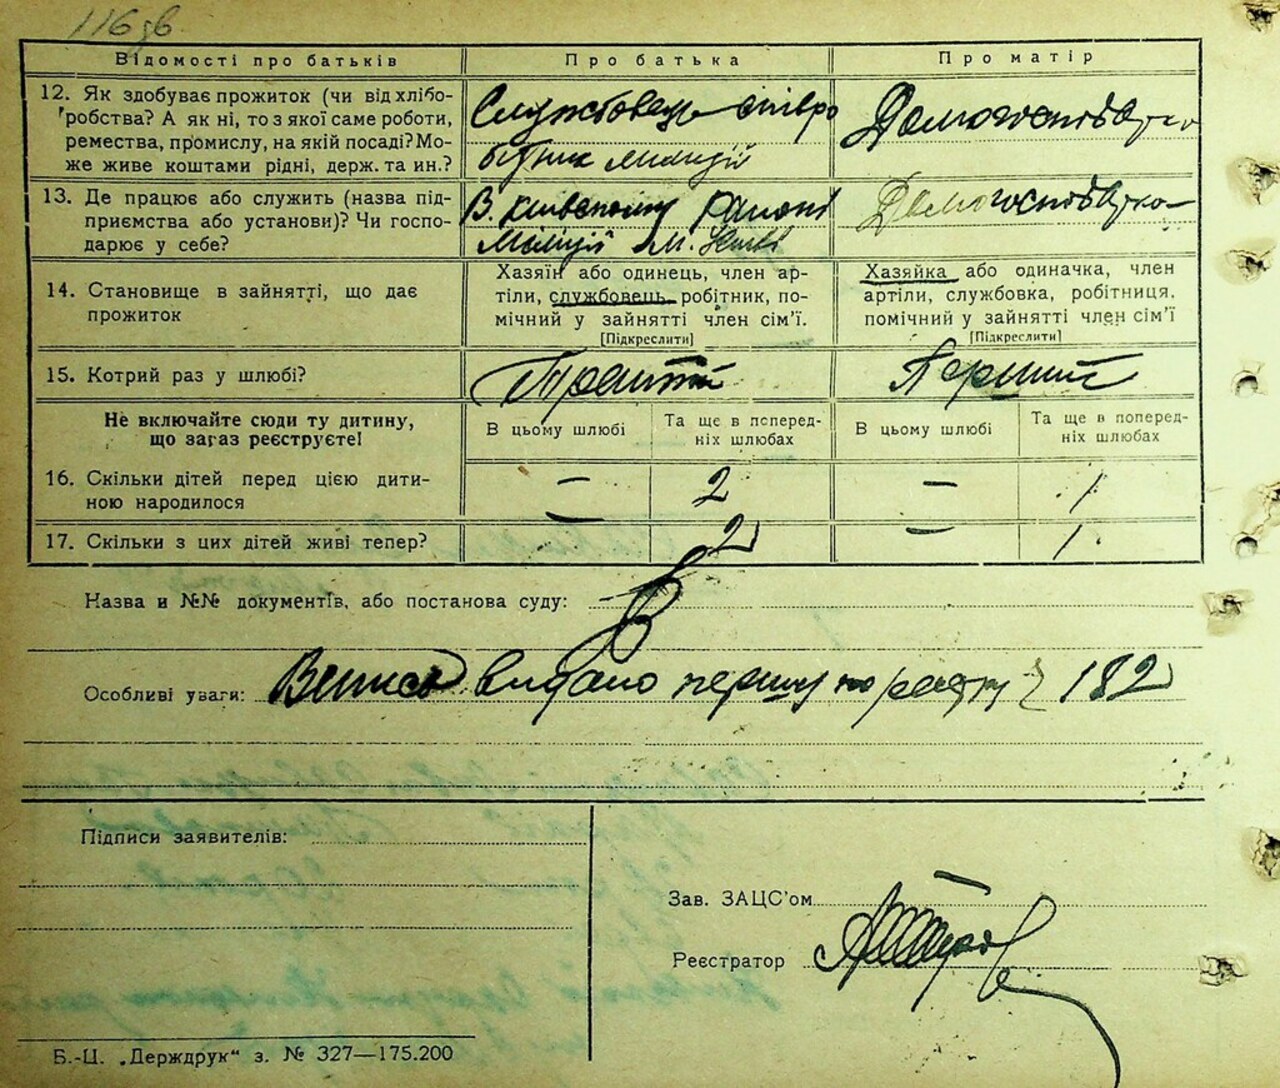 116 зв.
Відомості про батьків
Про батька
Про матір
12. Як здобуває прожиток (чи від хлібо-
робства? А як ні, то з якої саме роботи,
ремества, промислу, на якій посаді? Мо-
же живе коштами рідні, держ. та ин.?
Службовець співро
бітник міліції
Домогосподарка
13. Де працює або служить (назва під-
приємства або установи)? Чи госпо-
дарює у себе?
В. районі
Міліції м.
Домогосподарка
14. Становище в зайнятті, що дає
прожиток
Хазяїн або одинець, член ар-
тіли, службовець, робітник, по-
мічний у зайнятті член сім'ї.
[Підкреслити]
Хазяйка або одиначка, член
артіли, службовка, робітниця,
помічний у зайнятті член сім'ї
[Підкреслити]
15. Котрий раз у шлюбі?
Третій
Перший
Не включайте сюди ту дитину,
що загаз реєструєте!
В цьому шлюбі
Та ще в поперед-
ніх шлюбах
В цьому шлюбі
Та ще в поперед-
ніх шлюбах
16. Скільки дітей перед цією дити-
ною народилося
— 2 — 1
17. Скільки з цих дітей живі тепер?
— 2 — 1
Назва и №№ документів, або постанова суду:
Особливі уваги: видано першу по реєстру 182
Підписи заявителів:
Зав. ЗАЦС'ом
Реєстратор
Б.-Ц. „Держдрук“ з. № 327—175.200